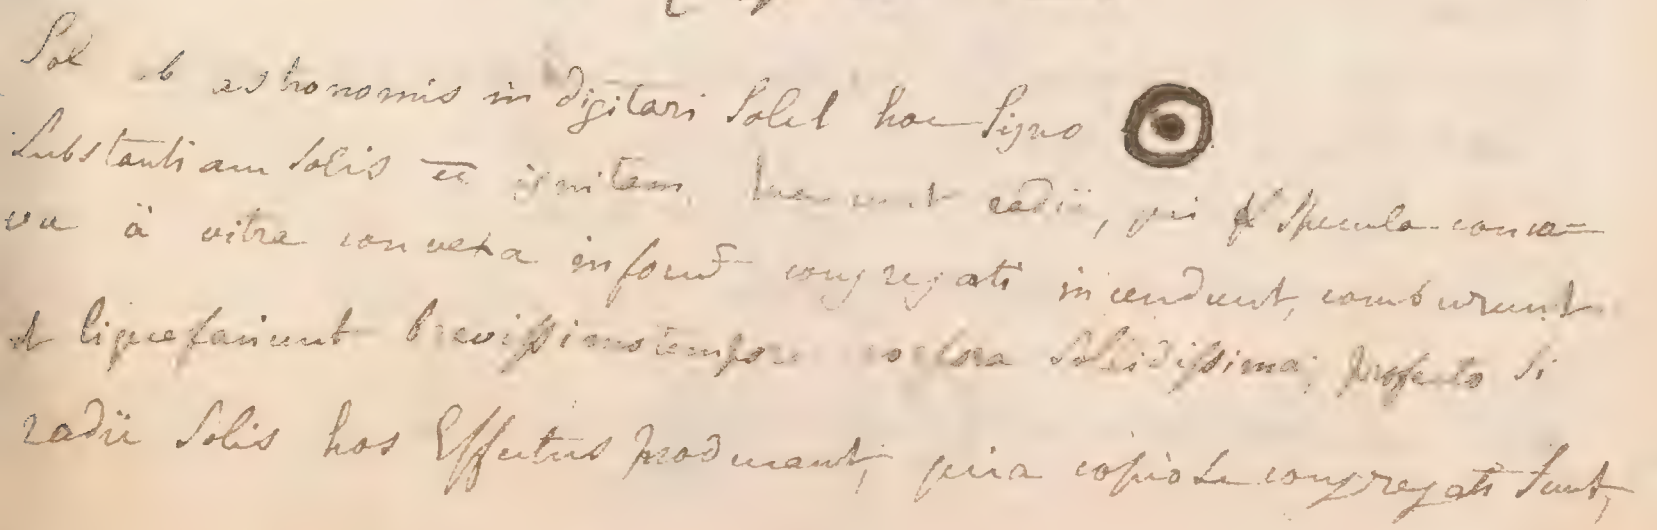 Sol ab astronomis indigitari Solet hoc Signo
Substantiam Solis ee ignitam, docent radii, qui p specula conca-
va à vitra convexa in focum congregati incendunt, comburunt
et liquefaciunt brevissimo tempore corpora Solidissima; profecto Si
radii Solis hos Effectus producant, quia copiose congregati Sunt,